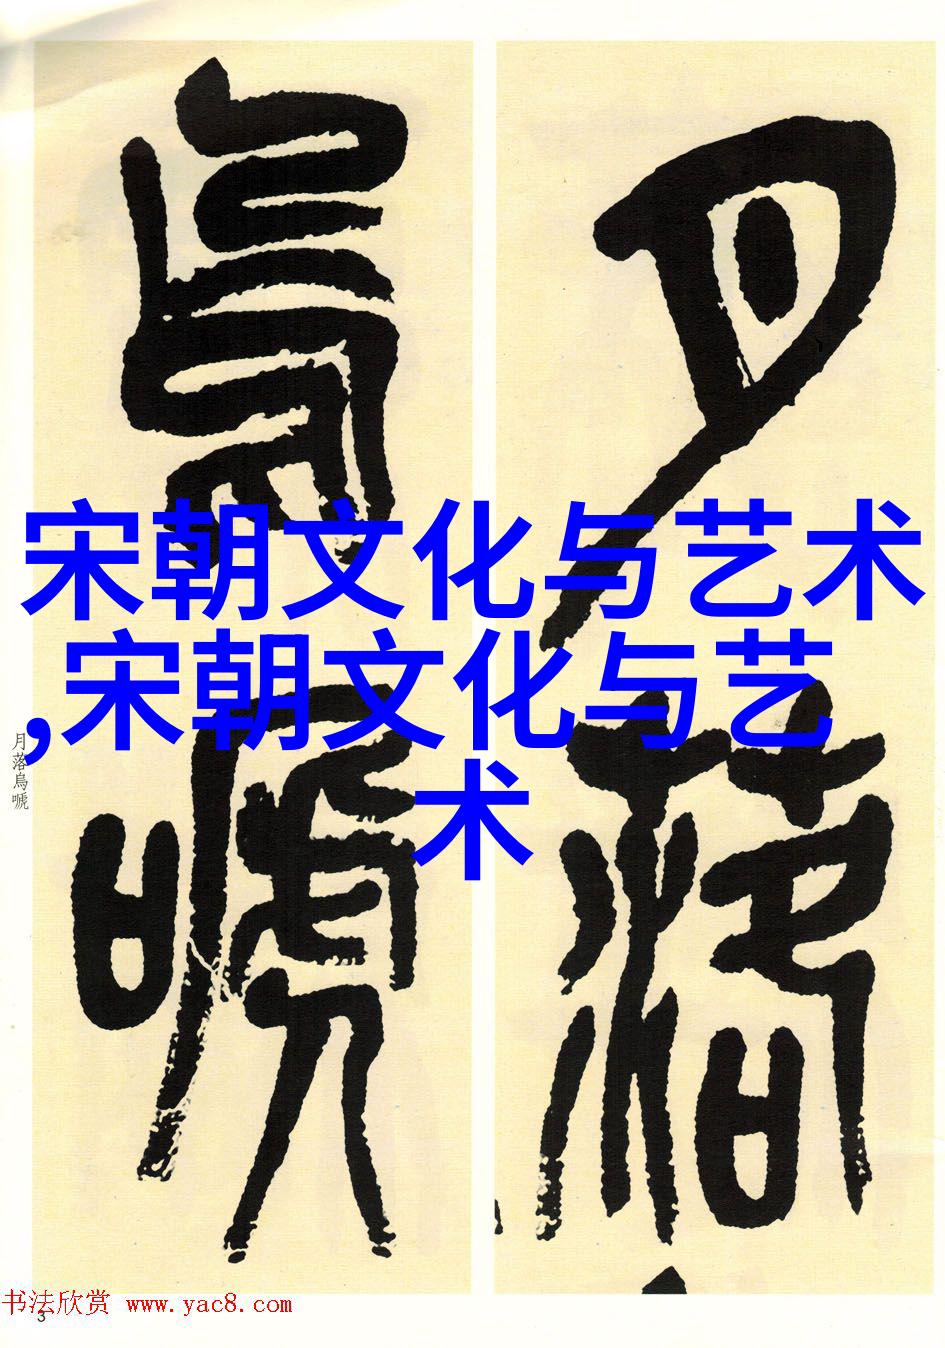 月落
烏嗁
宋朝文化与艺术
,宋朝文化与艺
术
月落烏嗁
书法欣赏 www.yac8.com
3